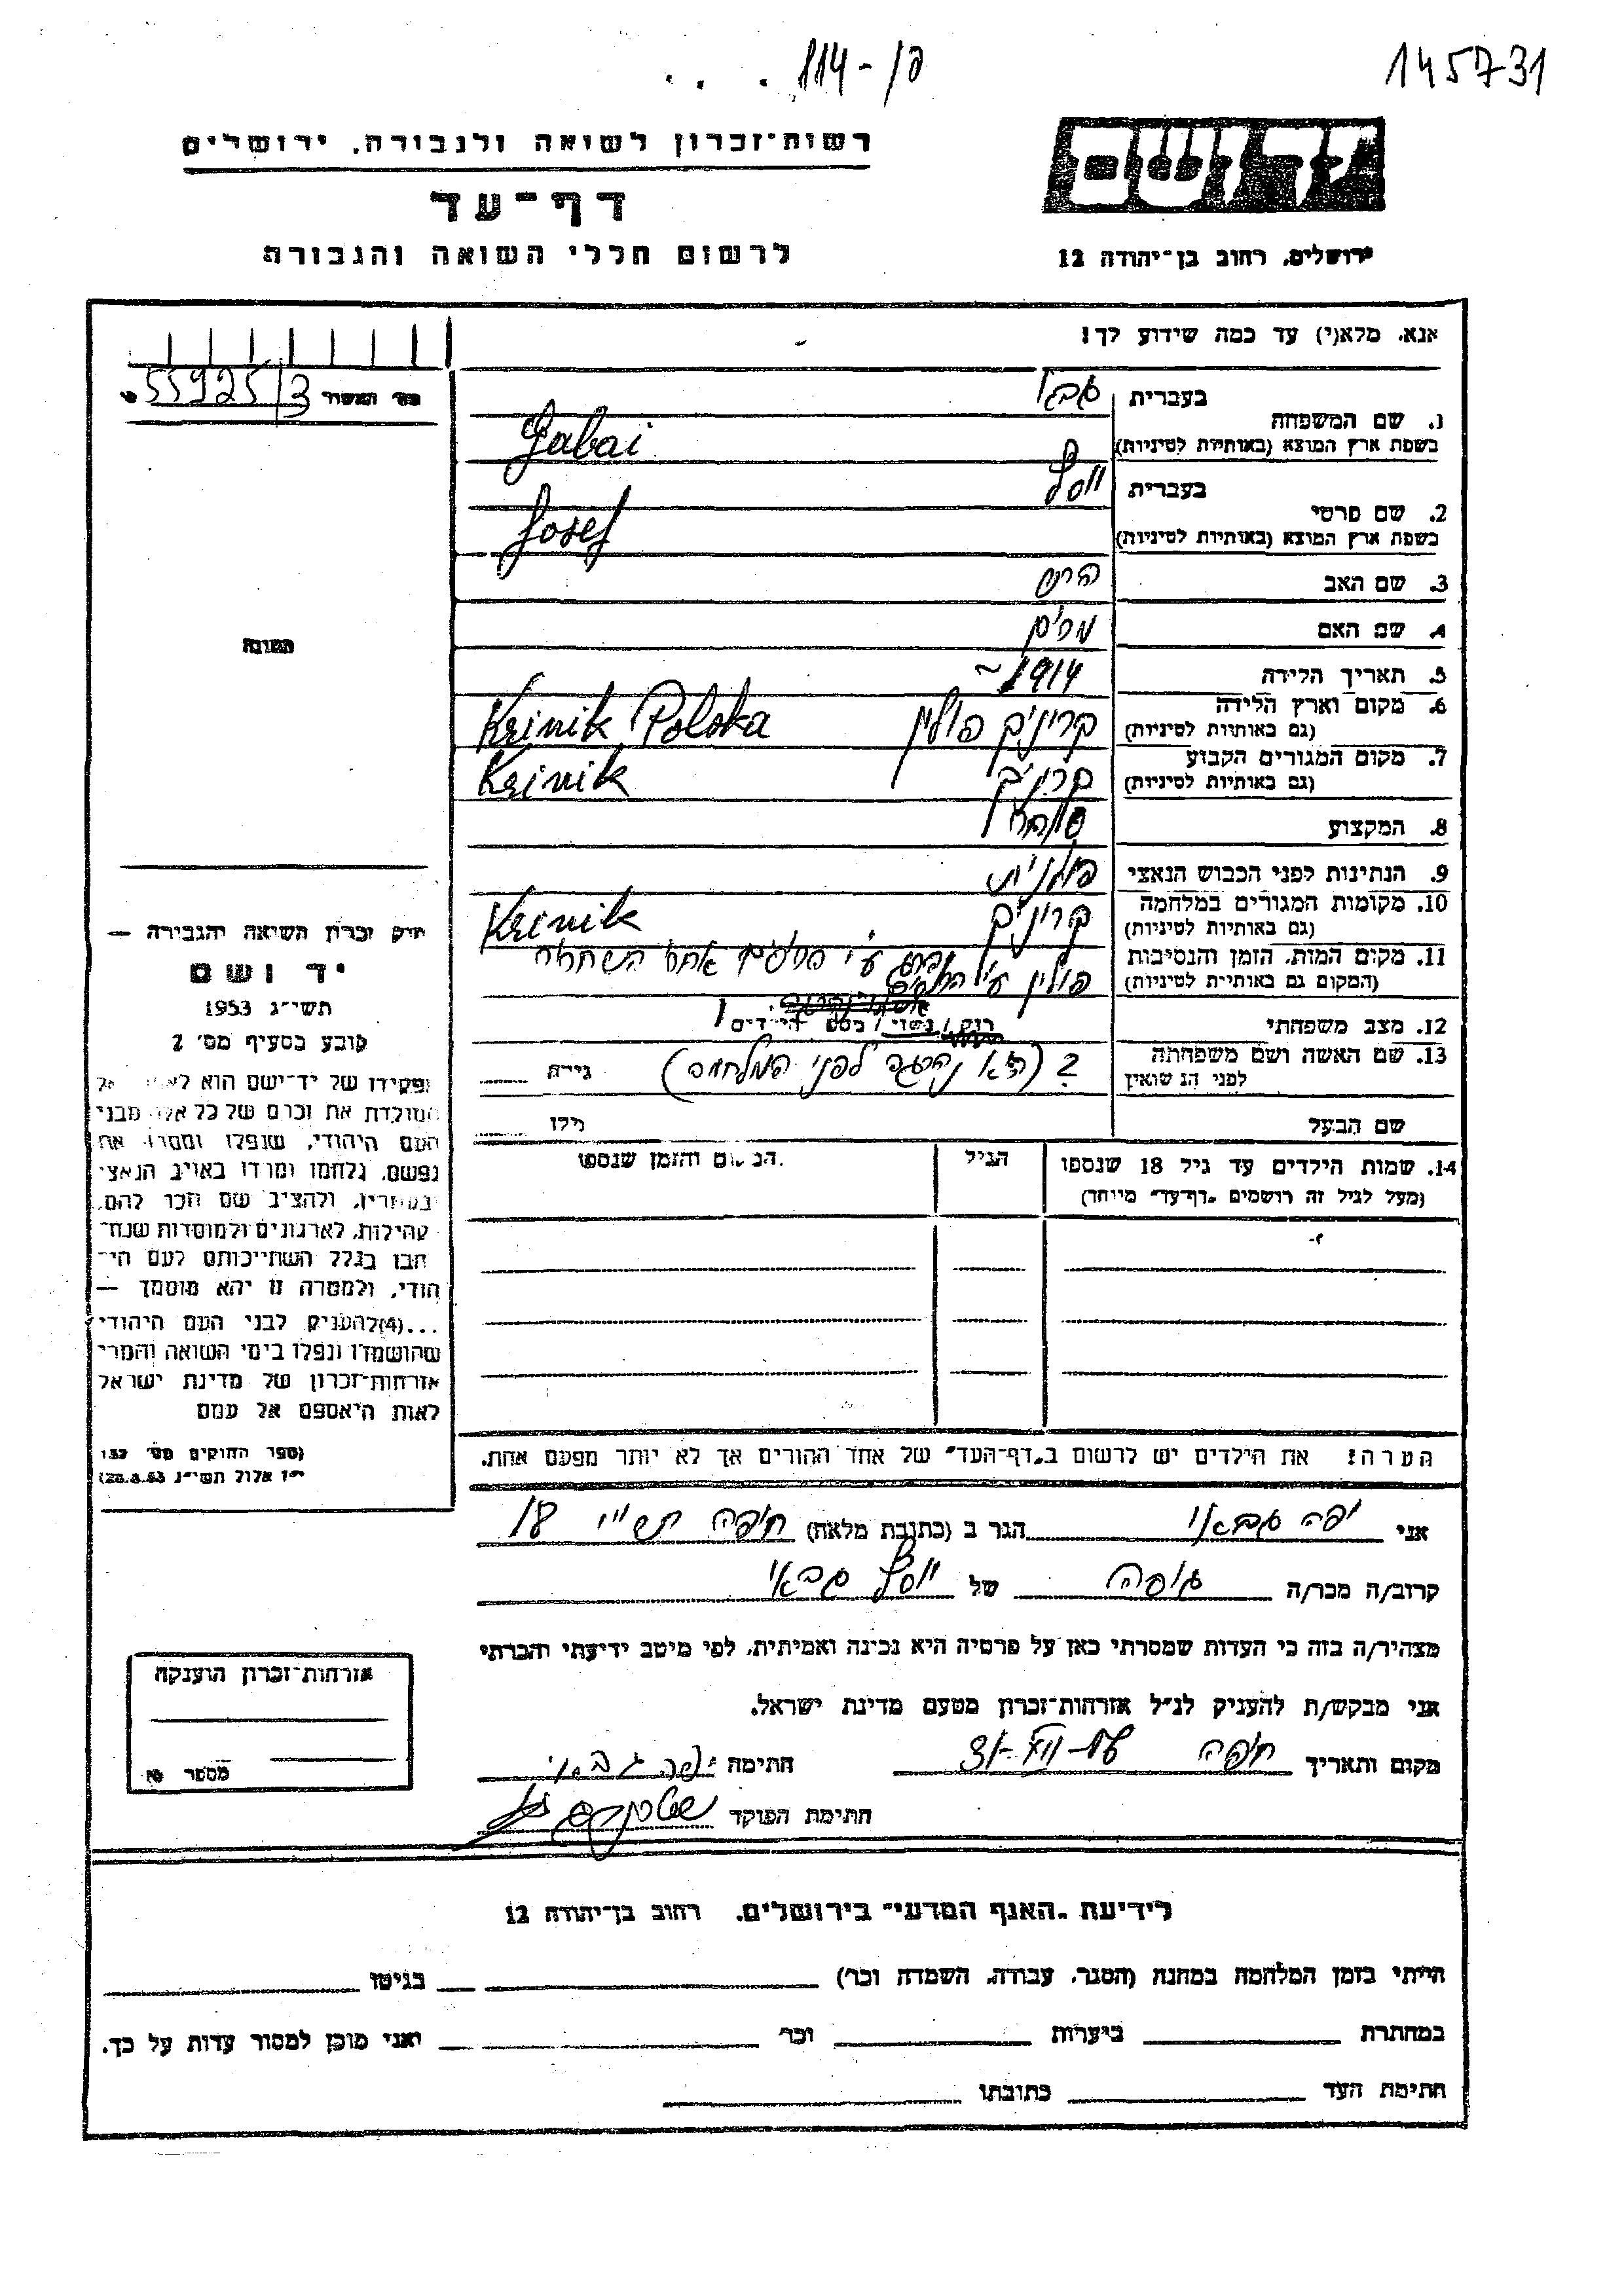 114-כ/
145731
רשות־זכרון לשואה ולגבורה, ירושלים
דף־עד
לרשום חללי השואה והגבורה
יד ושם
ירושלים, רחוב בן־יהודה 12
אנא, מלא(י) עד כמה שידוע לך!
55925/3
1. שם המשפחה
בעברית
גבאי
בשפת ארץ המוצא (באותיות לטיניות)
Gabai
2. שם פרטי
בעברית
יוסף
בשפת ארץ המוצא (באותיות לטיניות)
Josef
3. שם האב
4. שם האם
מרים
5. תאריך הלידה
1914 ~
6. מקום וארץ הלידה
(גם באותיות לטיניות)
קרינק פולין Krinik Polska
7. מקום המגורים הקבוע
(גם באותיות לטיניות)
קריניק Krinik
8. המקצוע
9. הנתינות לפני הכבוש הנאצי
פולנית
10. מקומות המגורים במלחמה
(גם באותיות לטיניות)
קריניק Krinik
11. מקום המות, הזמן והנסיבות
(המקום גם באותיות לטיניות)
נהרג ע"י פולנים אחרי השחרור
פולין
12. מצב משפחתי
רווק / נשוי / מספר הילדים
13. שם האשה ושם משפחתה
לפני הנשואין
? (לא לפני המלחמה)
גילה
שם הבעל
גילו
14. שמות הילדים עד גיל 18 שנספו
(מעל לגיל זה רושמים "דף־עד" מיוחד)
הגיל
המקום והזמן שנספו
הערה! את הילדים יש לרשום ב"דף־העד" של אחד ההורים אך לא יותר מפעם אחת.
תמונה
חוק זכרון השואה והגבורה —
יד ושם
תשי״ג 1953
קובע בסעיף מס' 2
תפקידו של יד־ושם הוא לאסוף אל
המולדת את זכרם של כל אלה מבני
העם היהודי, שנפלו ומסרו את
נפשם, נלחמו ומרדו באויב הנאצי
ובעוזריו, ולהציב שם וזכר להם,
לקהילות, לארגונים ולמוסדות שנח־
רבו בגלל השתייכותם לעם הי־
הודי, ולמטרה זו יהא מוסמך —
...(4) להעניק לבני העם היהודי
שהושמדו ונפלו בימי השואה והמרי
אזרחות־זכרון של מדינת ישראל
לאות היאספם אל עמם
(ספר החוקים מס' 132
י״ז אלול תשי״ג 28.8.53)
אני יפה גבאי הגר ב (כתובת מלאה) חיפה תש"י 18
קרוב/ה מכר/ה גיסה של יוסף גבאי
מצהיר/ה בזה כי העדות שמסרתי כאן על פרטיה היא נכונה ואמיתית, לפי מיטב ידיעתי והכרתי
אני מבקש/ת להעניק לנ"ל אזרחות־זכרון מטעם מדינת ישראל.
מקום ותאריך חיפה חתימה יפה גבאי
חתימת הפוקד
אזרחות־זכרון הוענקה
מספר
לידיעת "האגף המדעי" בירושלים, רחוב בן־יהודה 12
הייתי בזמן המלחמה במחנה (הסגר, עבודה, השמדה וכו') בגיטו
במחתרת ביערות וכו' ואני מוכן למסור עדות על כך.
חתימת העד כתובתו